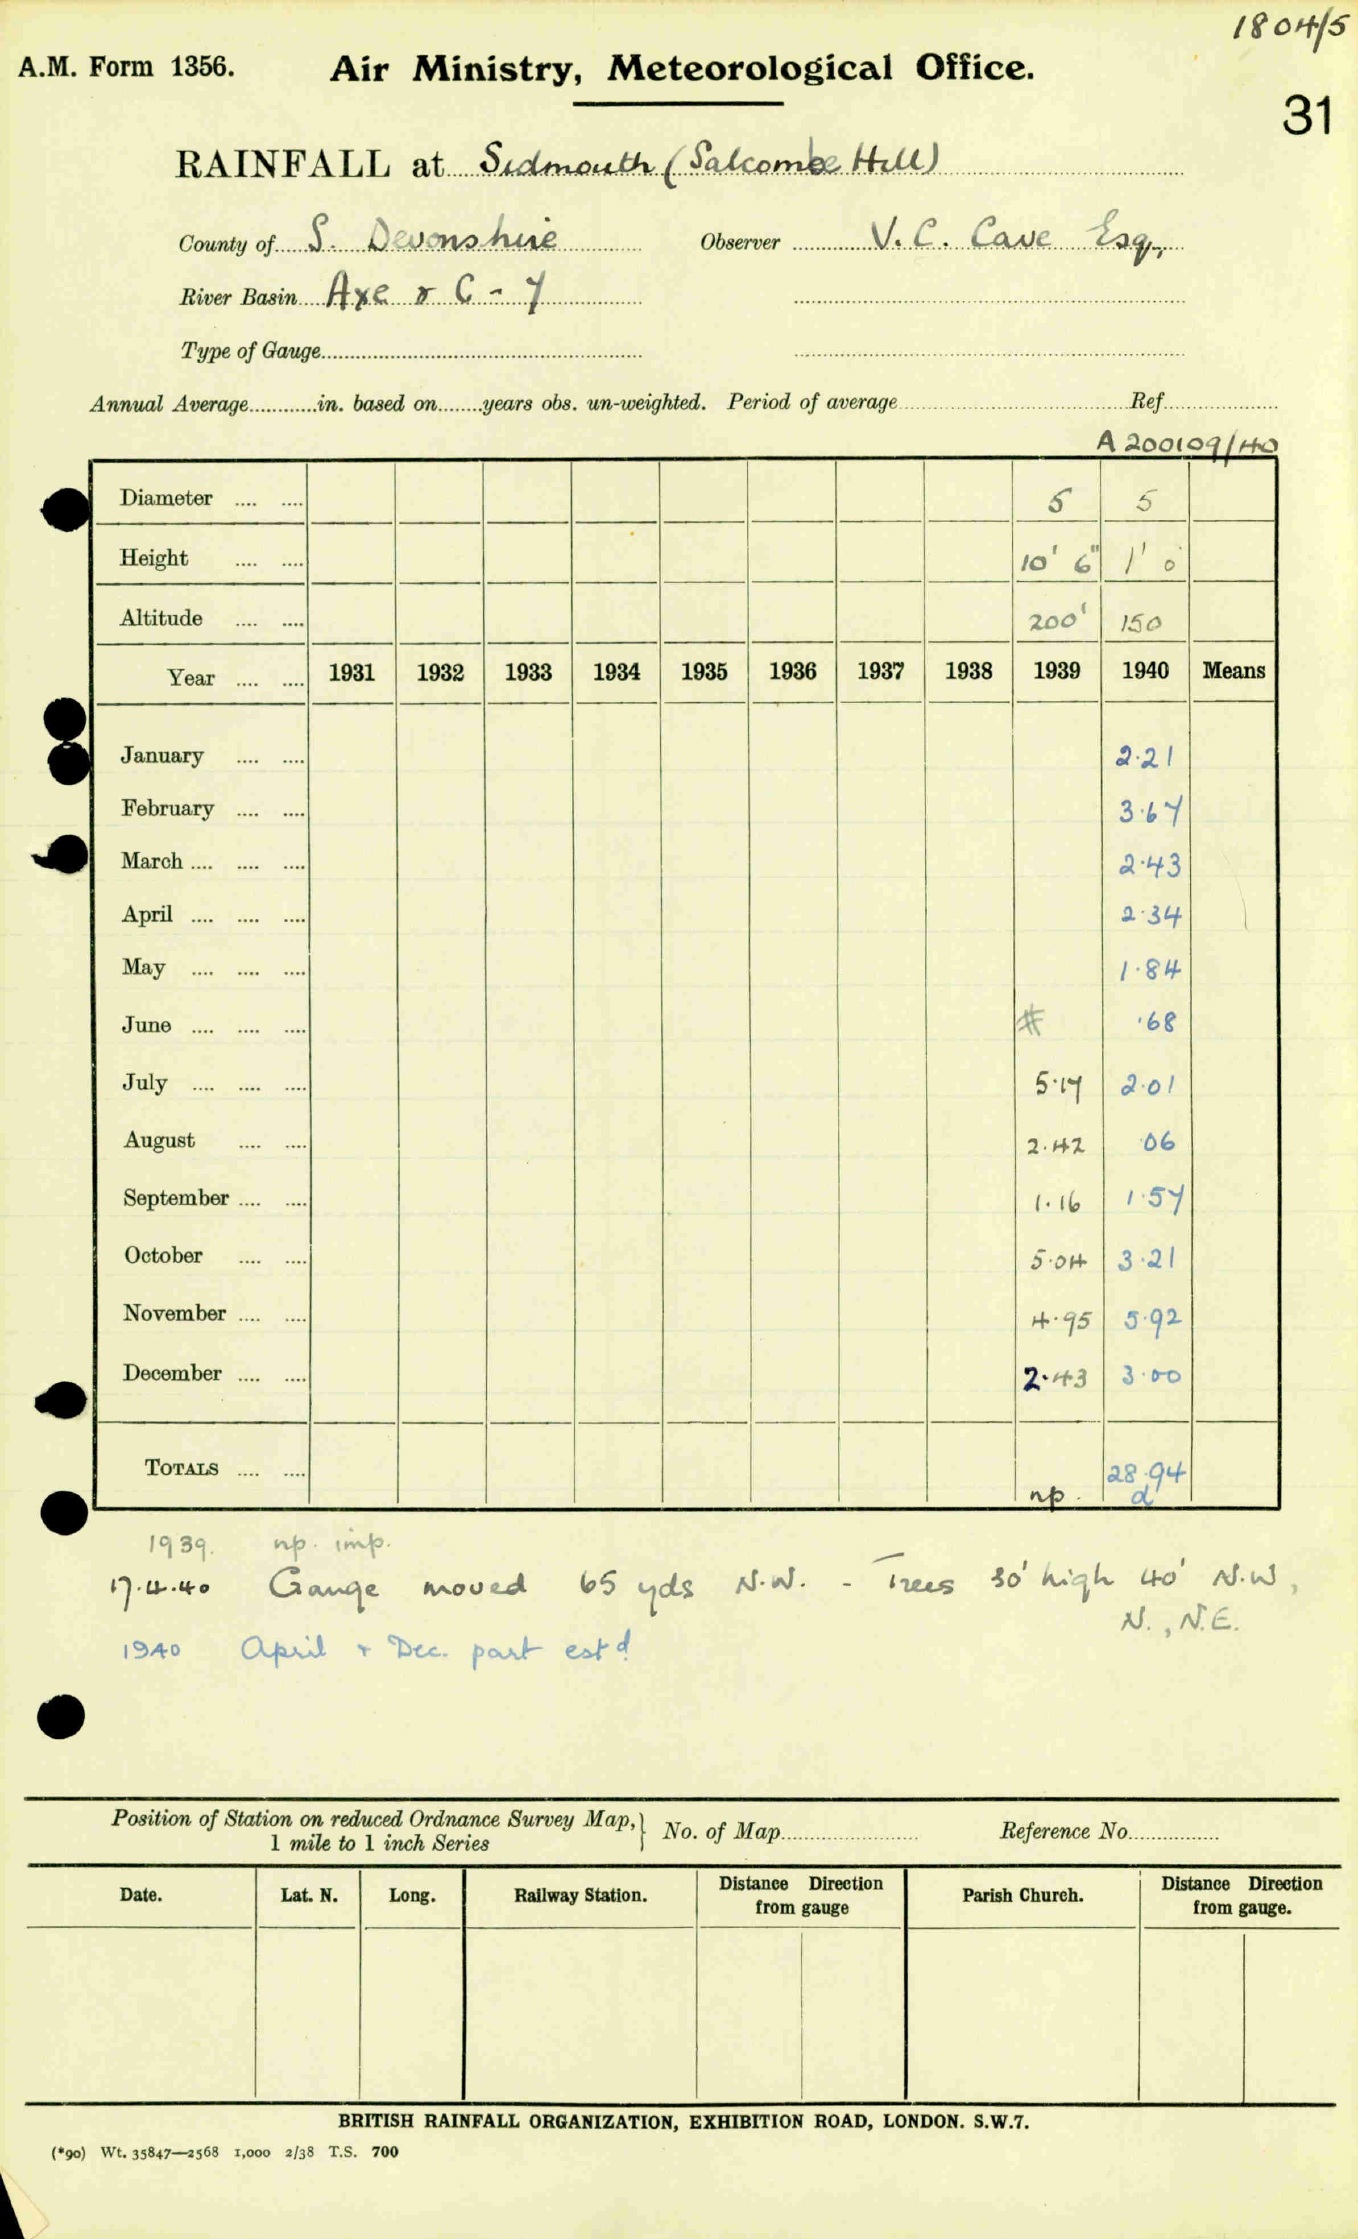 1804/5
A.M. Form 1356. Air Ministry, Meteorological Office.
31
RAINFALL at Sidmouth (Salcombe Hill)
County of S. Devonshire Observer V. C. Cave Esq.,
River Basin Axe & C - 7
Type of Gauge
Annual Average in. based on years obs. un-weighted. Period of average Ref.
A200109/40
Diameter .... .... 5 5
Height .... .... 10' 6" 1' 0"
Altitude .... .... 200' 150
Year .... .... 1931 1932 1933 1934 1935 1936 1937 1938 1939 1940 Means
January .... .... 2.21
February .... .... 3.67
March .... .... .... 2.43
April .... .... .... 2.34
May .... .... .... 1.84
June .... .... .... # .68
July .... .... .... 5.17 2.01
August .... .... 2.42 .06
September .... .... 1.16 1.57
October .... .... 5.04 3.21
November .... .... 4.95 5.92
December .... .... 2.43 3.00
TOTALS .... .... np. 28.94
d
1939. np. imp.
17.4.40 Gauge moved 65 yds N.W. - Trees 30' high 40' N.W,
N., N.E.
1940 April + Dec. part estd.
Position of Station on reduced Ordnance Survey Map, } No. of Map Reference No.
1 mile to 1 inch Series
Date. Lat. N. Long. Railway Station. Distance Direction from gauge Parish Church. Distance Direction from gauge.
BRITISH RAINFALL ORGANIZATION, EXHIBITION ROAD, LONDON. S.W.7.
(*90) Wt. 35847—2568 1,000 2/38 T.S. 700